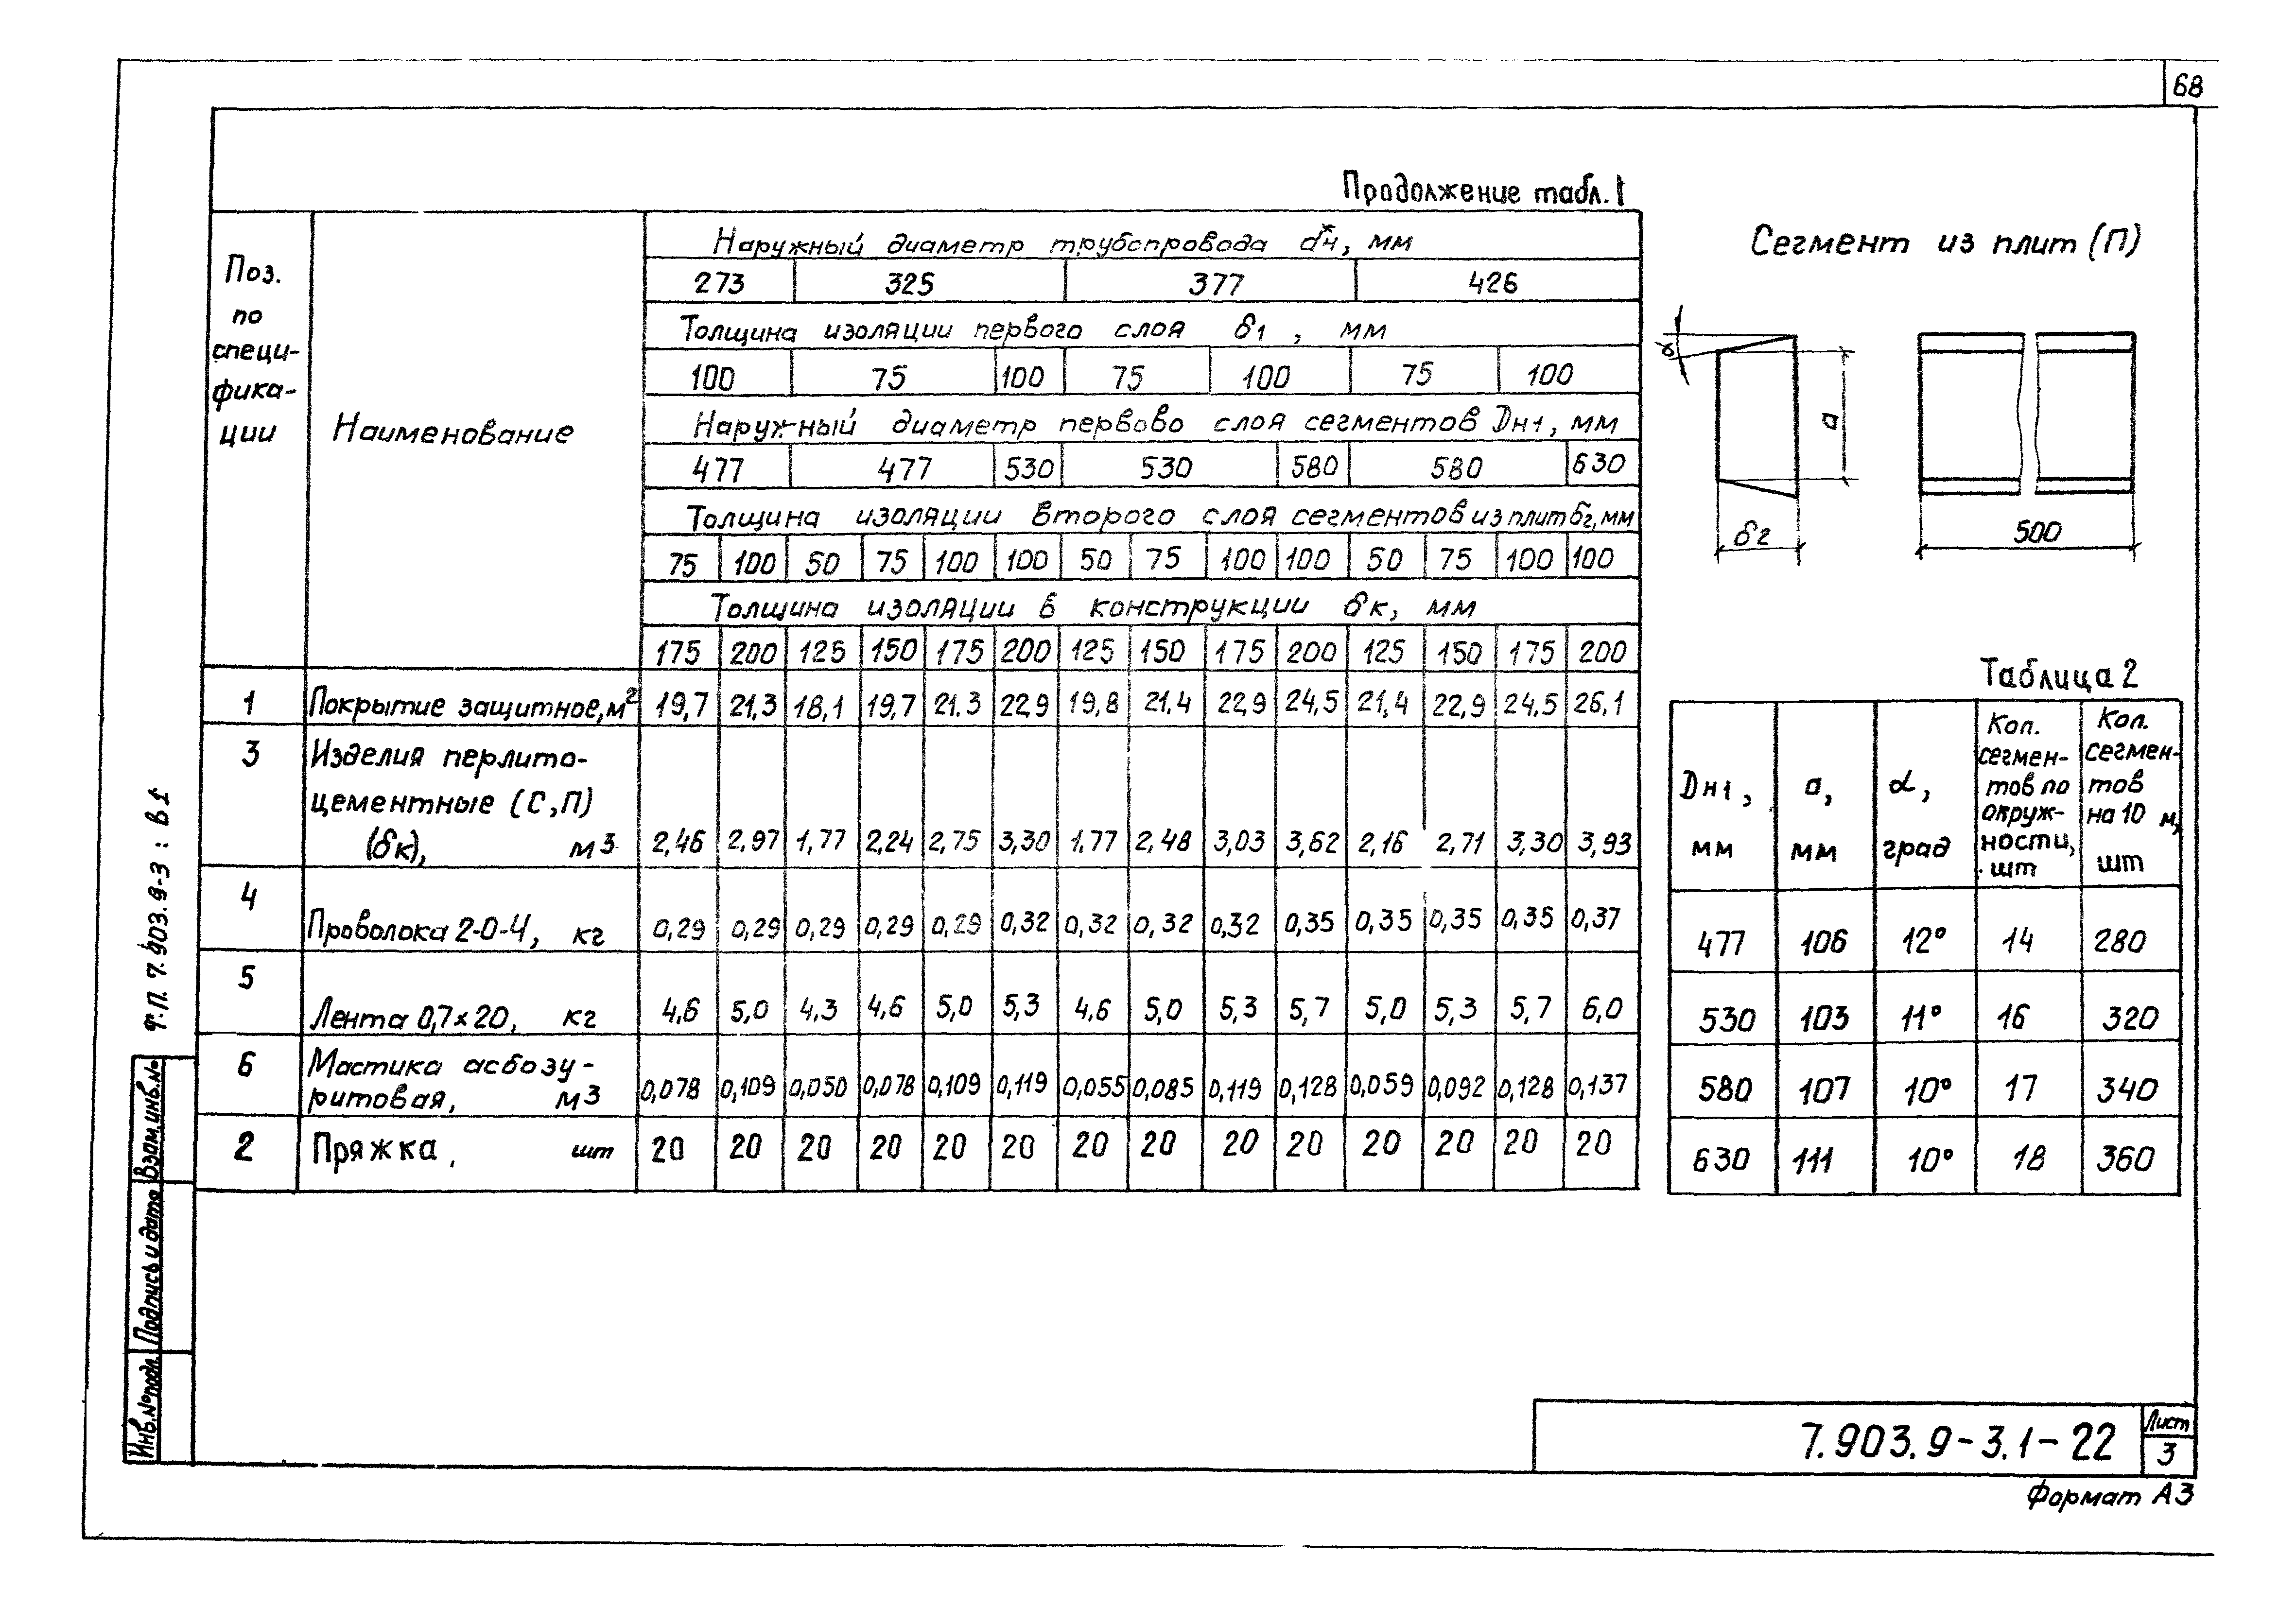 68
Продолжение табл. 1
Поз. по специ-фика-ции
Наименование
Наружный диаметр трубопровода d*н, мм
273 325 377 426
Толщина изоляции первого слоя δ1, мм
100 75 100 75 100 75 100
Наружный диаметр первово слоя сегментов Dн1, мм
477 477 530 530 580 580 630
Толщина изоляции второго слоя сегментов из плит δ2, мм
75 100 50 75 100 100 50 75 100 100 50 75 100 100
Толщина изоляции в конструкции δк, мм
175 200 125 150 175 200 125 150 175 200 125 150 175 200
1 Покрытие защитное, м² 19,7 21,3 18,1 19,7 21.3 22,9 19,8 21.4 22,9 24,5 21,4 22,9 24.5 26,1
3 Изделия перлито-
цементные (С,П)
(δк), м3 2,46 2,97 1,77 2,24 2,75 3,30 1.77 2,48 3,03 3,62 2,16 2,71 3,30 3,93
4
Проволока 2-0-Ч, кг 0,29 0,29 0,29 0,29 0,29 0,32 0,32 0,32 0,32 0,35 0,35 0,35 0,35 0,37
5
Лента 0,7×20, кг 4,6 5,0 4,3 4,6 5,0 5,3 4,6 5,0 5,3 5,7 5,0 5,3 5,7 6,0
6 Мастика асбозу-
ритовая, м3 0,078 0,109 0,050 0,078 0,109 0,119 0,055 0,085 0,119 0,128 0,059 0,092 0,128 0,137
2 Пряжка, шт 20 20 20 20 20 20 20 20 20 20 20 20 20 20
Сегмент из плит (П)
α
a
δ2
500
Таблица 2
Dн1, мм
a, мм
α, град
Кол. сегмен-тов по окруж-ности, шт
Кол. сегмен-тов на 10 м, шт
477 106 12° 14 280
530 103 11° 16 320
580 107 10° 17 340
630 111 10° 18 360
т.п. 7.903.9-3 : в1
Взам.инв.№
Подпись и дата
Инв.№подл.
7.903.9-3.1-22
Лист
3
Формат А3